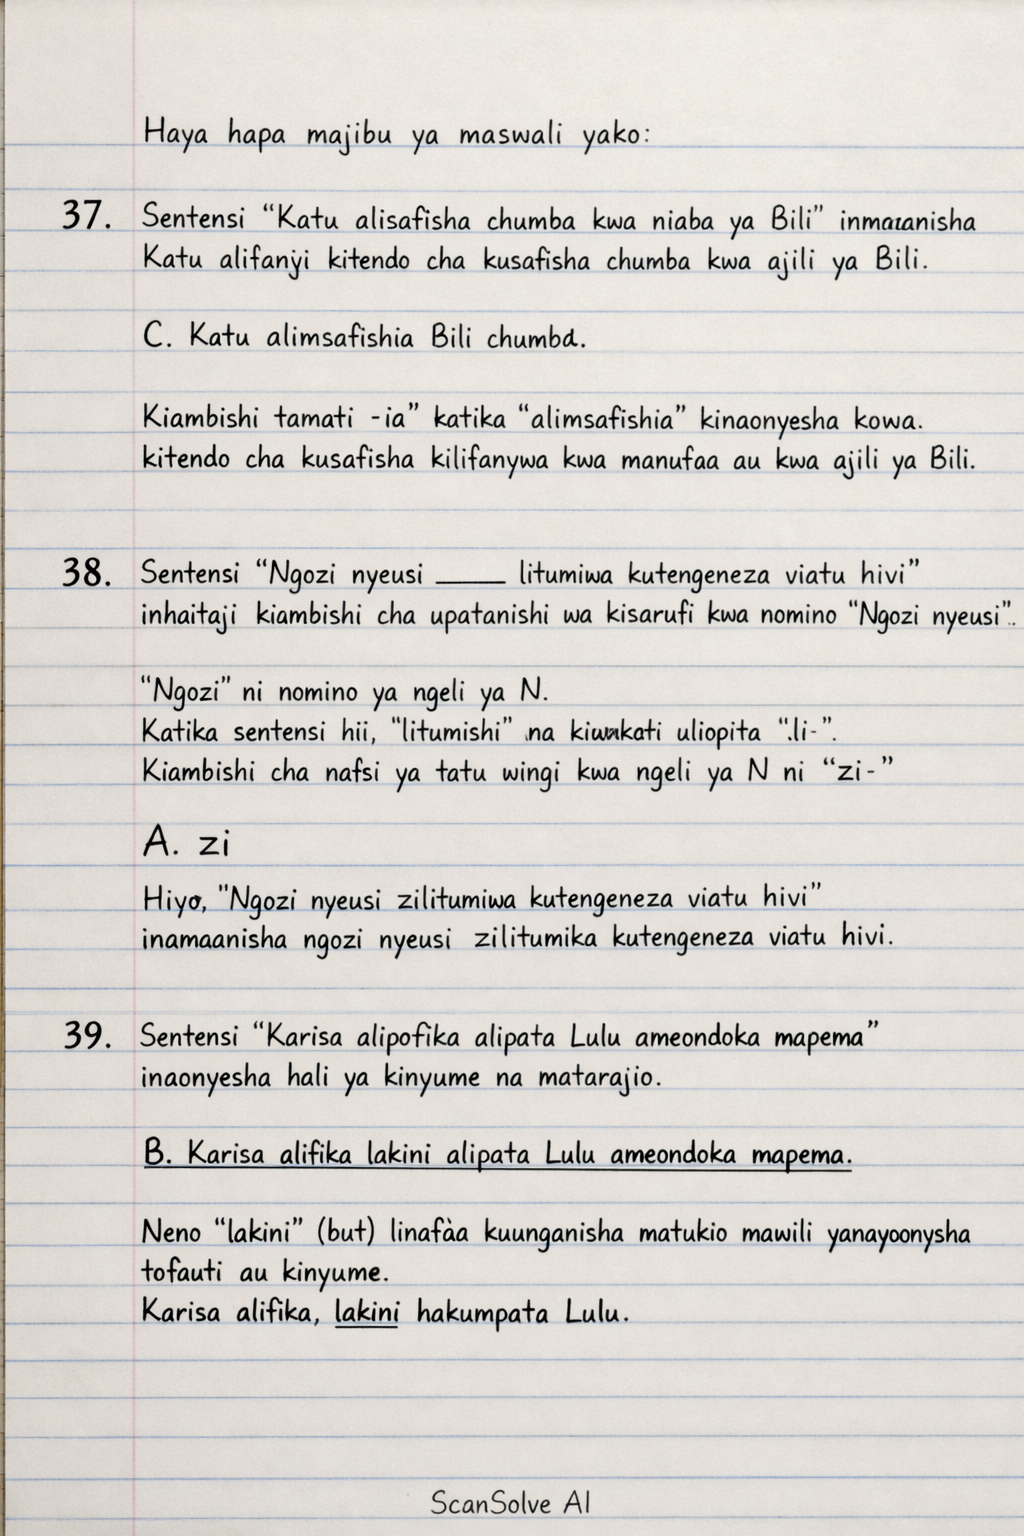 Haya hapa majibu ya maswali yako:
37. Sentensi “Katu alisafisha chumba kwa niaba ya Bili”
Katu alifanyi kitendo cha kusafisha chumba kwa ajili ya Bili.
C. Katu alimsafishia Bili chumba.
Kiambishi tamati -ia” katika “alimsafishia” kinaonyesha kowa.
kitendo cha kusafisha kilifanywa kwa manufaa au kwa ajili ya Bili.
38. Sentensi “Ngozi nyeusi _____ litumiwa kutengeneza viatu hivi”
inhaitaji kiambishi cha upatanishi wa kisarufi kwa nomino “Ngozi nyeusi”.
“Ngozi” ni nomino ya ngeli ya N.
Katika sentensi hii, "litumishi" na uliopita “.li-”.
Kiambishi cha nafsi ya tatu wingi kwa ngeli ya N ni “zi-”
A. zi
Hiyo, "Ngozi nyeusi zilitumiwa kutengeneza viatu hivi”
inamaanisha ngozi nyeusi zilitumika kutengeneza viatu hivi.
39. Sentensi “Karisa alipofika alipata Lulu ameondoka mapema”
inaonyesha hali ya kinyume na matarajio.
B. Karisa alifika lakini alipata Lulu ameondoka mapema.
Neno “lakini” (but) linafàa kuunganisha matukio mawili yanayoonysha
tofauti au kinyume.
Karisa alifika, lakini hakumpata Lulu.
ScanSolve AI